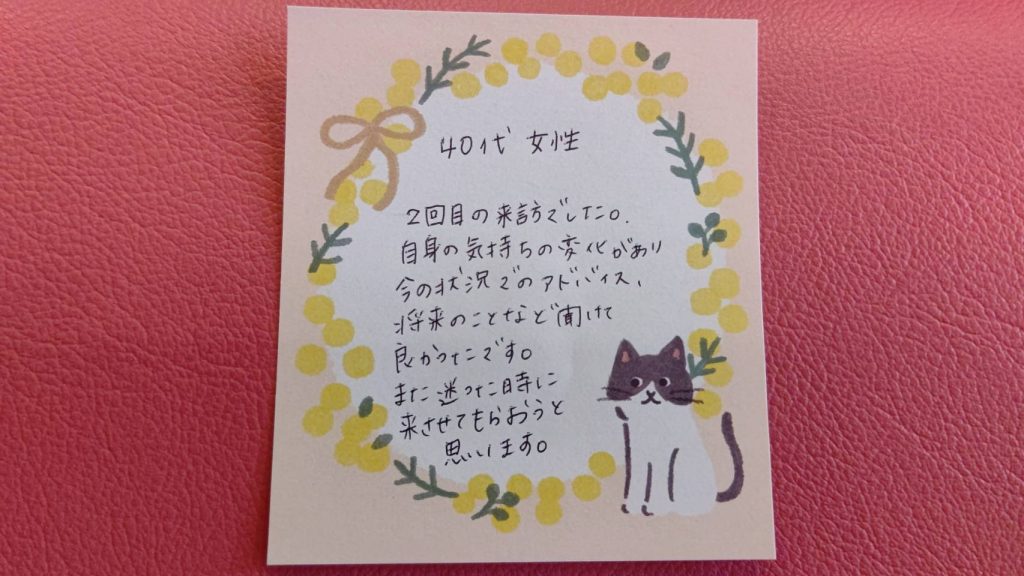 40代 女性
2回目の来訪でした。
自身の気持ちの変化があり
今の状況でのアドバイス、
将来のことなど聞けて
良かったです。
また迷った時に
来させてもらおうと
思います。